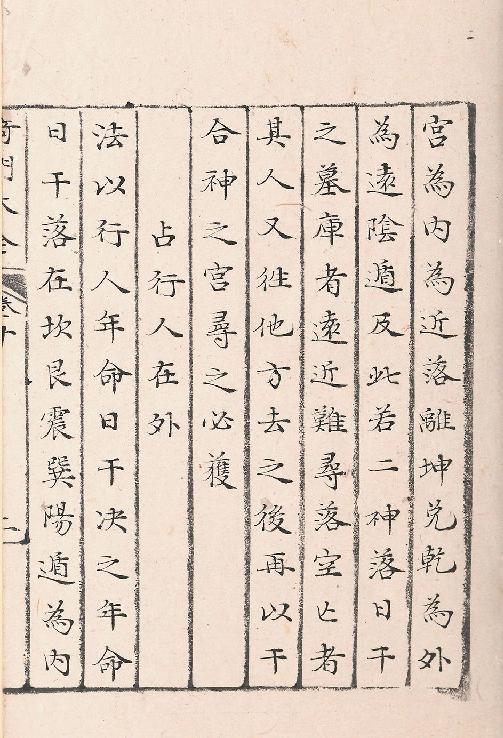 宮為内為近落離坤兑乾為外
為遠陰遁及此若二神落日干
之墓庫者遠近難尋落空亡者
其人又往他方去之後再以干
合神之宮尋之必獲
占行人在外
法以行人年命日干决之年命
日干落在坎艮震巽陽遁為内
奇門大全 卷十